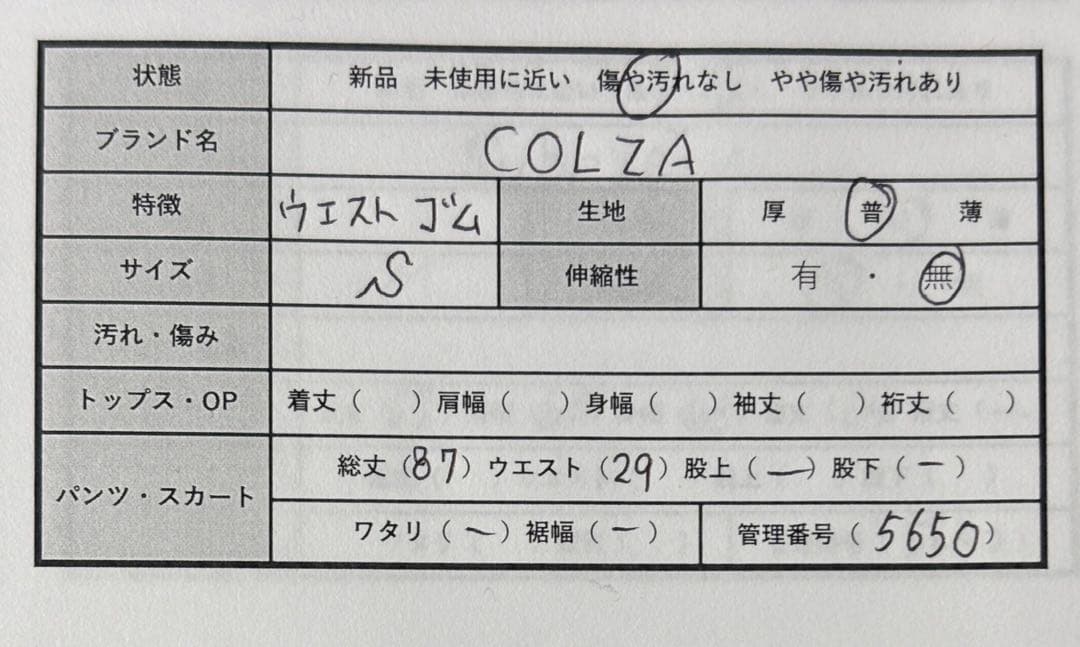 状態 新品 未使用に近い 傷や汚れなし やや傷や汚れあり
ブランド名 COLZA
特徴 ウエストゴム 生地 厚 普 薄
サイズ S 伸縮性 有 ・ 無
汚れ・傷み
トップス・OP 着丈（ ）肩幅（ ）身幅（ ）袖丈（ ）裄丈（ ）
パンツ・スカート 総丈（87）ウエスト（29）股上（ー）股下（ー）
ワタリ（ー）裾幅（ー） 管理番号（5650）